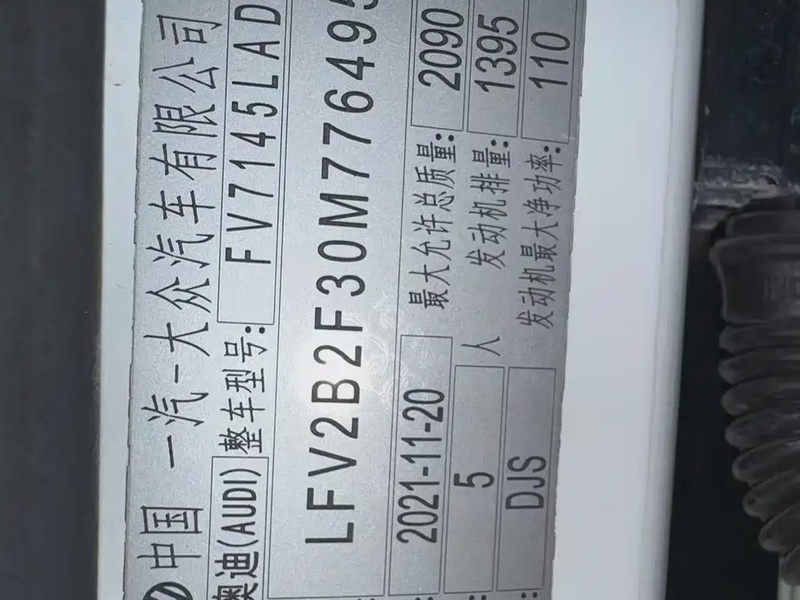 中国 一汽-大众汽车有限公司
奥迪(AUDI) 整车型号: FV7145LAD
LFV2B2F30M776495
2021-11-20 最大允许总质量: 2090
5 人 发动机排量: 1395
DJS 发动机最大净功率: 110